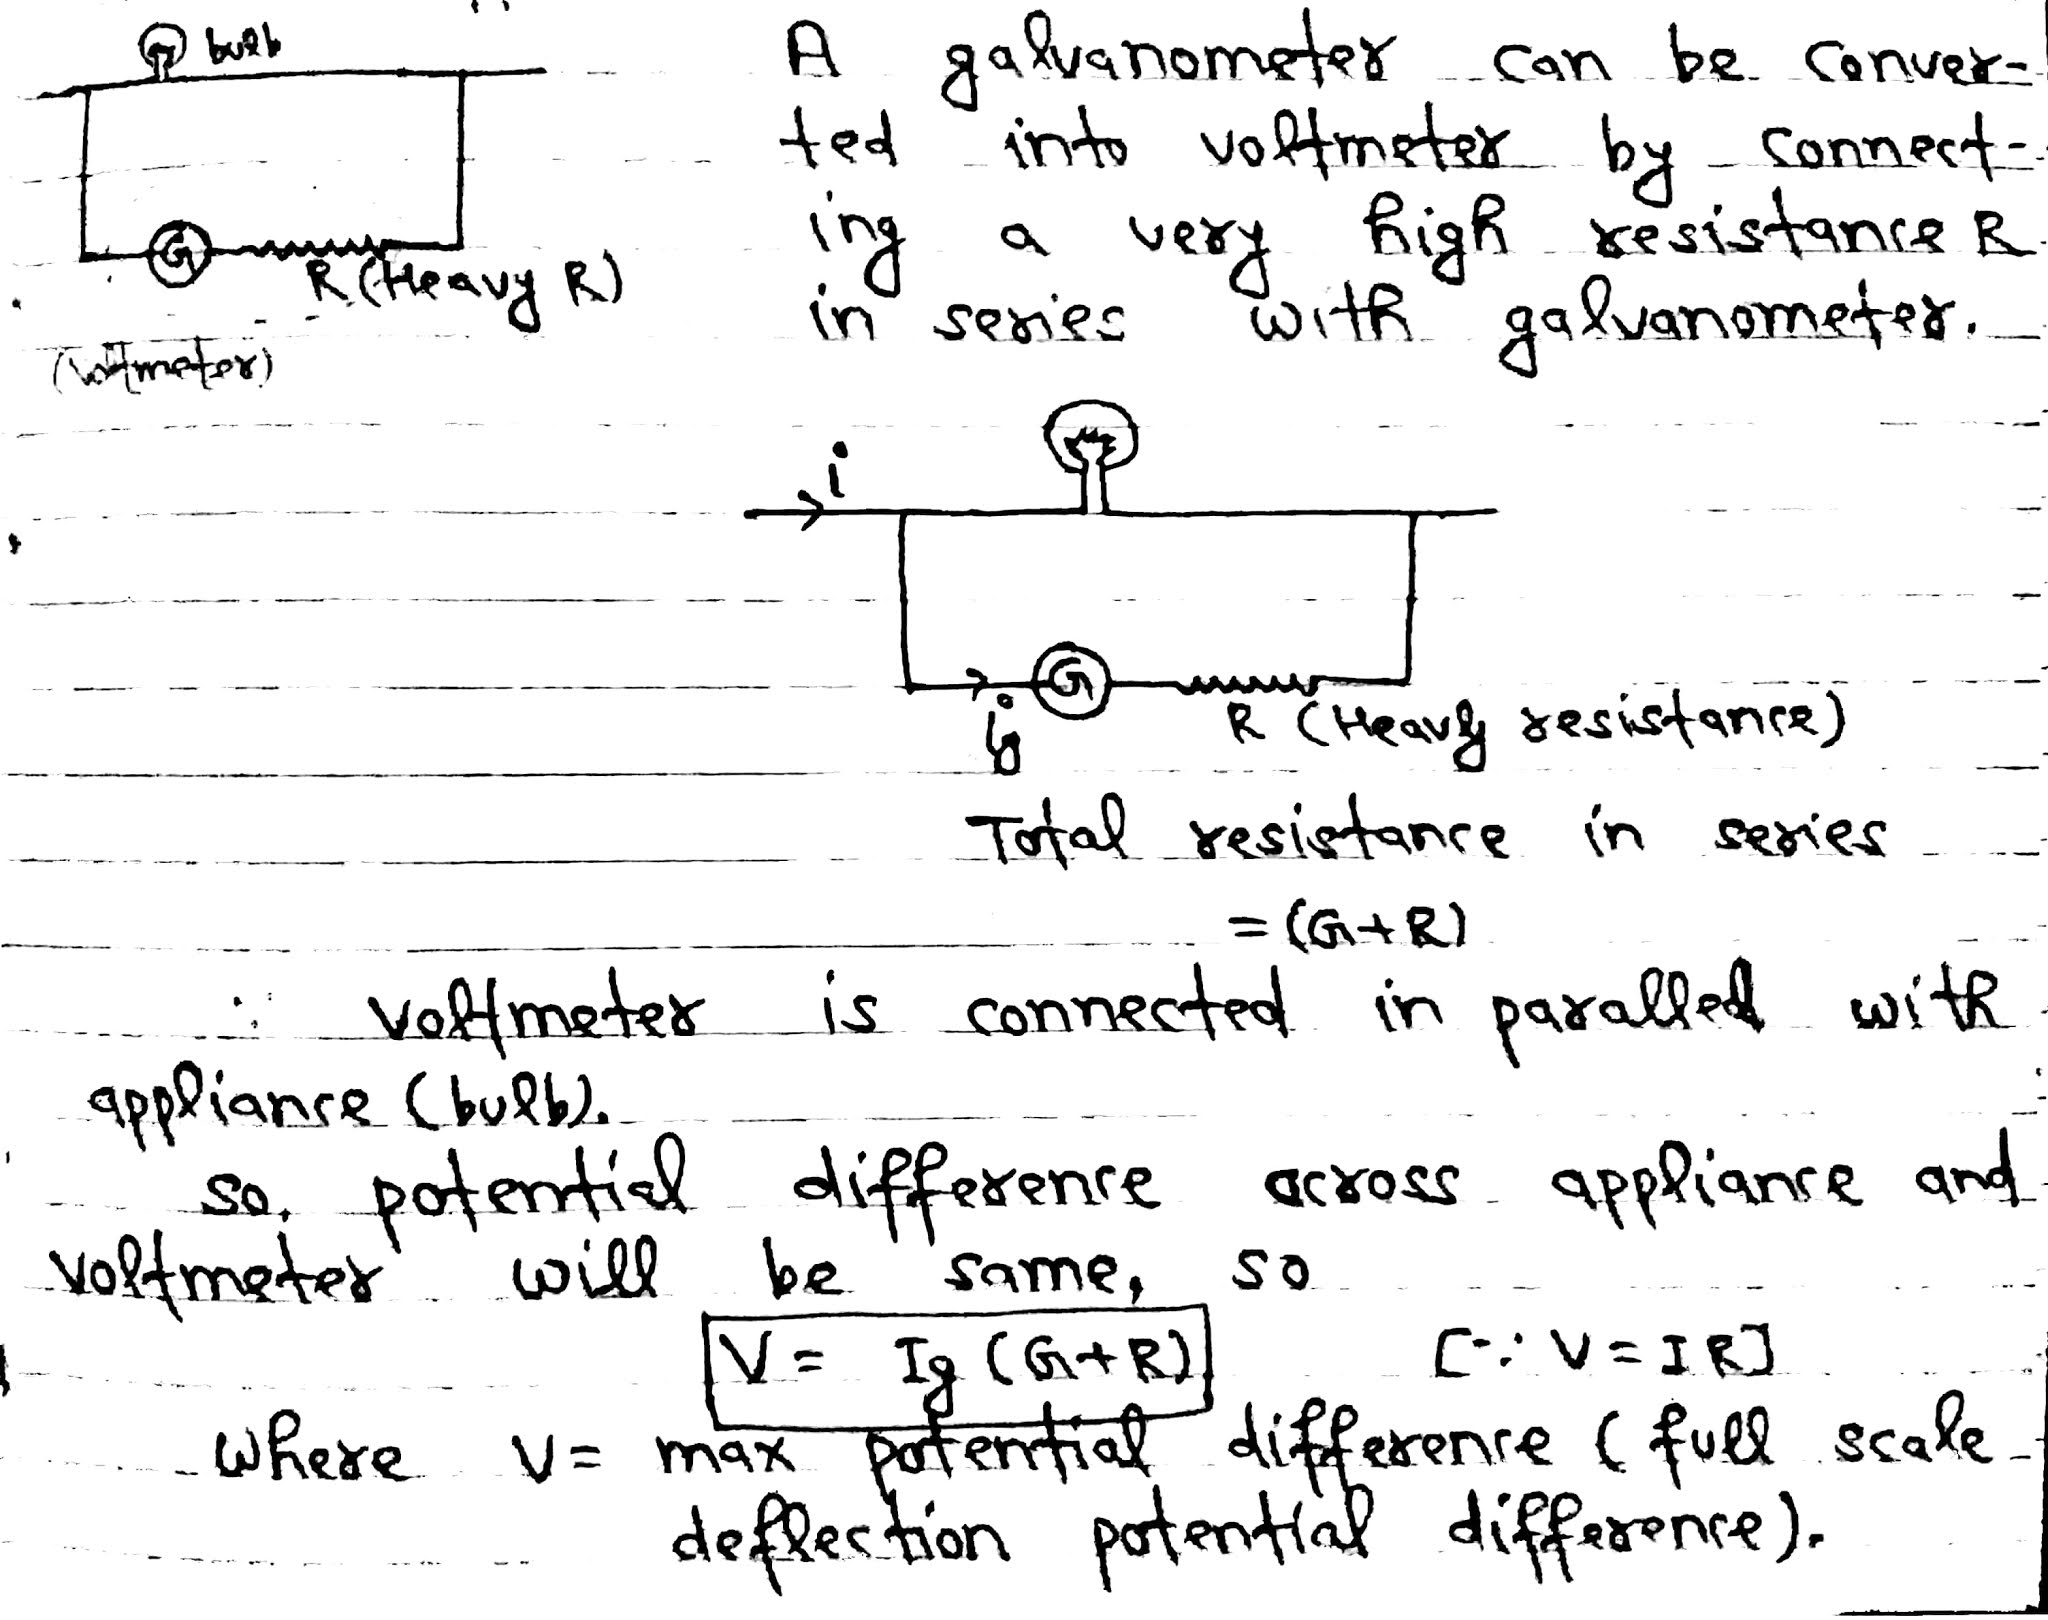 bulb
A galvanometer can be conver-
ted into voltmeter by connect-
ing a very high resistance R
in series with galvanometer.
G
R (Heavy R)
(Voltmeter)
i
G
ig
R (Heavy resistance)
Total resistance in series
= (G+R)
∵ voltmeter is connected in parallel with
appliance (bulb).
so, potential difference across appliance and
voltmeter will be same, so
V = Ig (G+R) [∵ V = IR]
Where V = max potential difference (full scale
deflection potential difference).